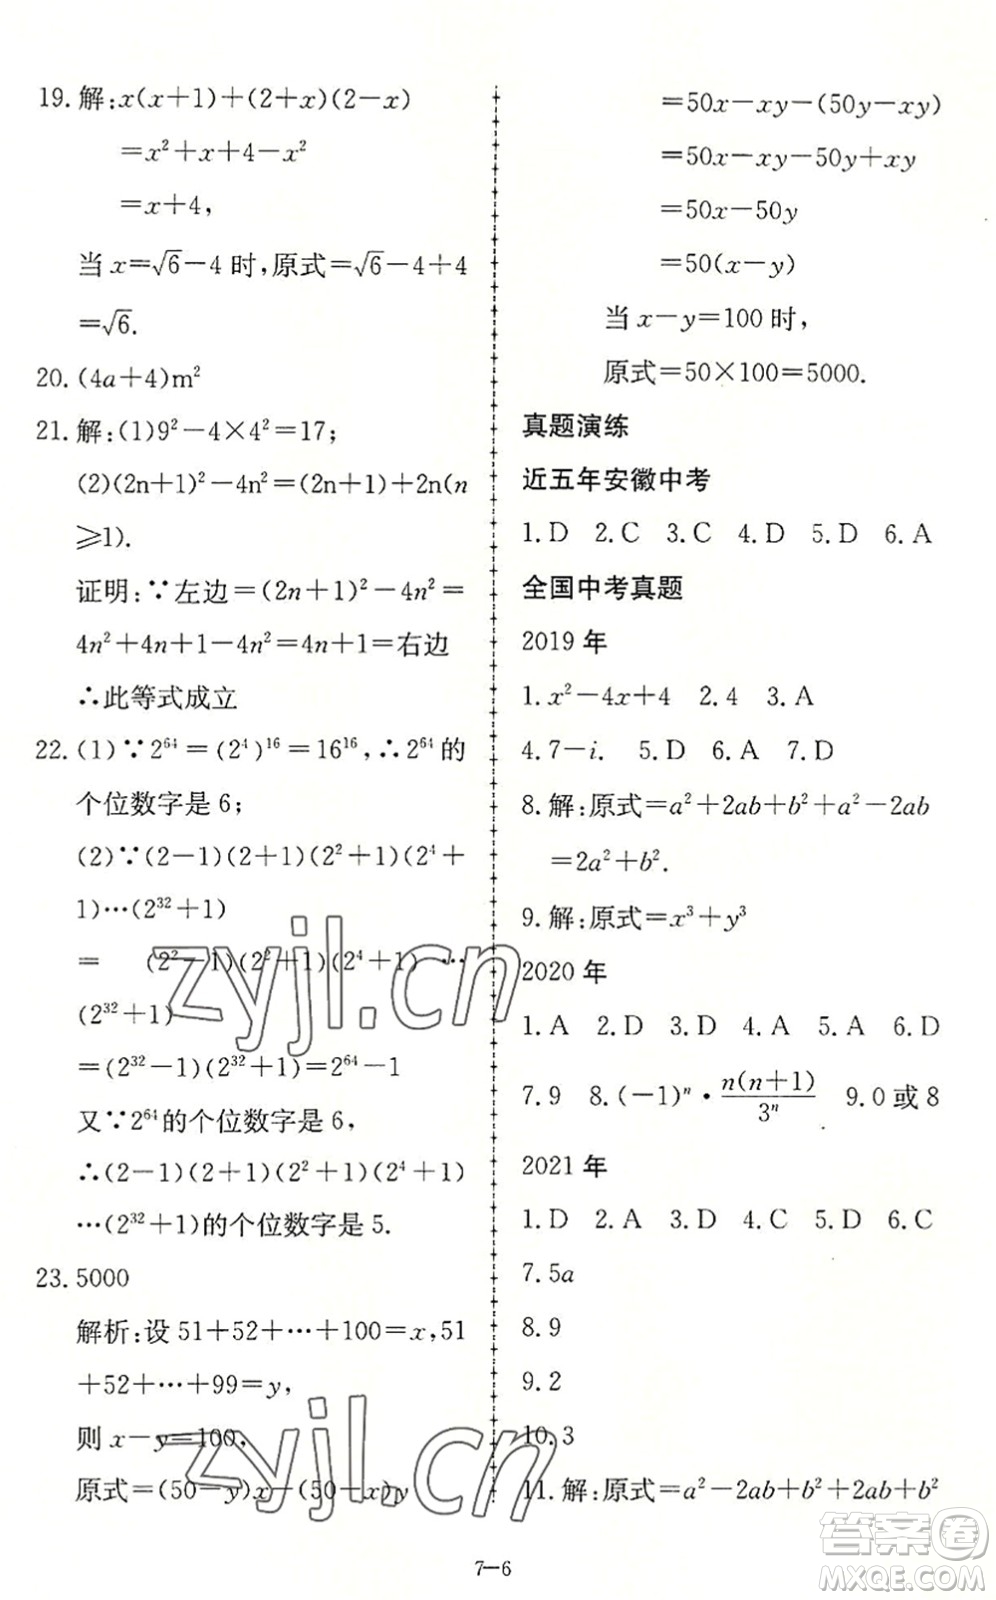 19.解:x(x+1)+(2+x)(2-x)
=x²+x+4-x²
=x+4,
当 x=√6-4 时,原式=√6-4+4
=√6.
20.(4a+4)m²
21.解:(1)9²-4×4²=17;
(2)(2n+1)²-4n²=(2n+1)+2n(n
⩾1).
证明:∵左边=(2n+1)²-4n²=
4n²+4n+1-4n²=4n+1=右边
∴此等式成立
22.(1)∵2⁶⁴=(2⁴)¹⁶=16¹⁶,∴2⁶⁴的
个位数字是 6;
(2)∵(2-1)(2+1)(2²+1)(2⁴+
1)…(2³²+1)
= (2²-1)(2²+1)(2⁴+1) …
(2³²+1)
=(2³²-1)(2³²+1)=2⁶⁴-1
又∵2⁶⁴的个位数字是 6,
∴(2-1)(2+1)(2²+1)(2⁴+1)
…(2³²+1)的个位数字是 5.
23.5000
解析:设 51+52+…+100=x,51
+52+…+99=y,
则 x-y=100,
原式=(50-y)x-(50-x)y
=50x-xy-(50y-xy)
=50x-xy-50y+xy
=50x-50y
=50(x-y)
当 x-y=100 时,
原式=50×100=5000.
真题演练
近五年安徽中考
1.D 2.C 3.C 4.D 5.D 6.A
全国中考真题
2019 年
1.x²-4x+4 2.4 3.A
4.7-i. 5.D 6.A 7.D
8.解:原式=a²+2ab+b²+a²-2ab
=2a²+b².
9.解:原式=x³+y³
2020 年
1.A 2.D 3.D 4.A 5.A 6.D
7.9 8.(-1)ⁿ·n(n+1)/3ⁿ 9.0 或 8
2021 年
1.D 2.A 3.D 4.C 5.D 6.C
7.5a
8.9
9.2
10.3
11.解:原式=a²-2ab+b²+2ab+b²
7-6
zyjl.cn
zyjl.cn
答案卷
MXQE.COM